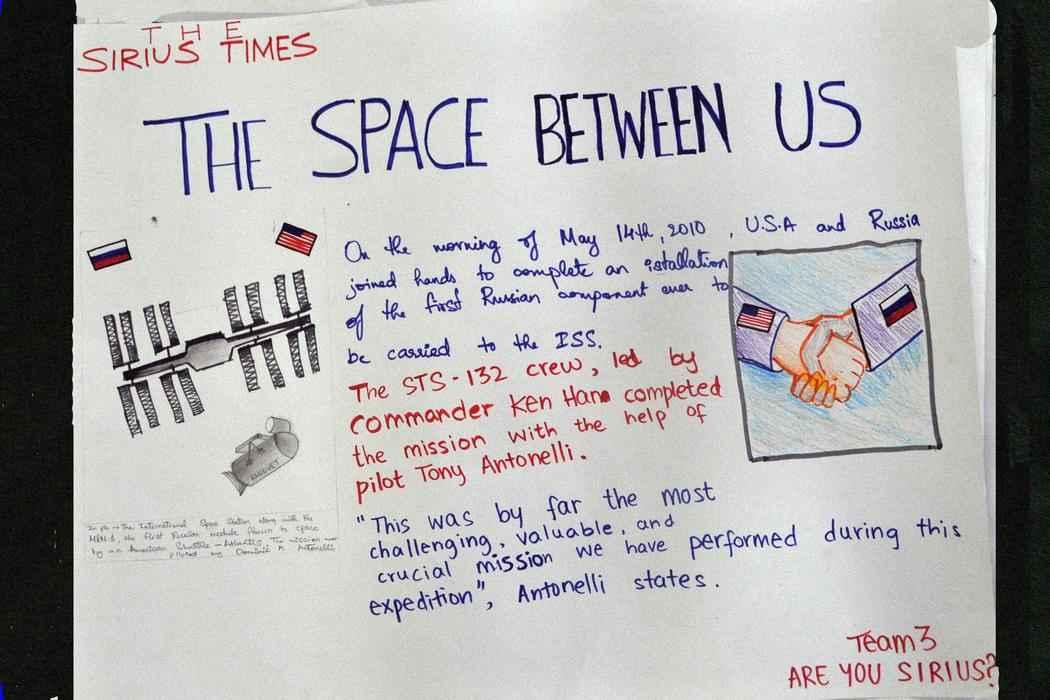 THE
SIRIUS TIMES
THE SPACE BETWEEN US
On the morning of May 14th, 2010, U.S.A and Russia
joined hands to complete an istallation
of the first Russian component ever to
be carried to the ISS.
The STS-132 crew, led by
commander Ken Ham completed
the mission with the help of
pilot Tony Antonelli.
"This was by far the most
challenging, valuable, and
crucial mission we have performed during this
expedition", Antonelli states.
In pic → The International Space Station along with the
MRM-1, the first Russian module flown to space
by an American Shuttle - Atlantis. The mission was
piloted by Dominic A. Antonelli
Team 3
ARE YOU SIRIUS?